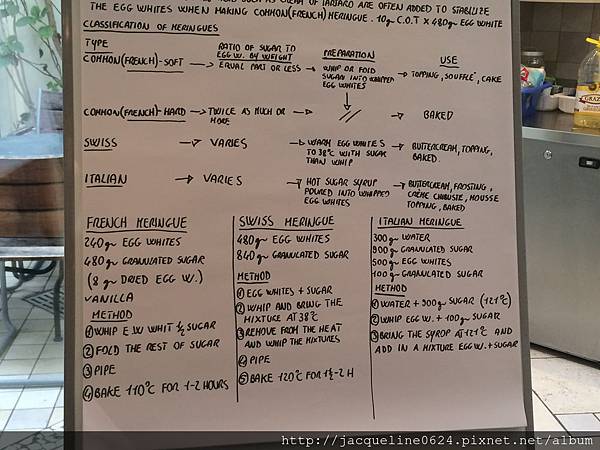 OF TARTARO ARE OFTEN ADDED TO STABILIZE
THE EGG WHITES WHEN MAKING COMMON (FRENCH) MERINGUE. 10gr C.O.T X 480gr EGG WHITE
CLASSIFICATION OF MERINGUES
TYPE RATIO OF SUGAR TO EGG W. BY WEIGHT PREPARATION USE
COMMON (FRENCH)-SOFT → EQUAL PART OR LESS → WHIP OR FOLD SUGAR INTO WHIPPED EGG WHITES → TOPPING, SOUFFLE', CAKE
COMMON (FRENCH)-HARD → TWICE AS MUCH OR MORE → // → BAKED
SWISS → VARIES → WARM EGG WHITES TO 38°C WITH SUGAR THAN WHIP → BUTTERCREAM, TOPPING, BAKED.
ITALIAN → VARIES → HOT SUGAR SYRUP POURED INTO WHIPPED EGG WHITES → BUTTERCREAM, FROSTING, CRÈME CHIBUSTE, MOUSSE TOPPING, BAKED
FRENCH MERINGUE
240gr EGG WHITES
480gr GRANULATED SUGAR
(8 gr DRIED EGG W.)
VANILLA
METHOD
① WHIP E.W WHIT ½ SUGAR
② FOLD THE REST OF SUGAR
③ PIPE
④ BAKE 110°C FOR 1-2 HOURS
SWISS MERINGUE
480gr EGG WHITES
840gr GRANULATED SUGAR
METHOD
① EGG WHITES + SUGAR
② WHIP AND BRING THE
MIXTURE AT 38°C
③ REMOVE FROM THE HEAT
AND WHIP THE MIXTURES
④ PIPE
⑤ BAKE 120°C FOR 1½-2 H
ITALIAN MERINGUE
300gr WATER
900gr GRANULATED SUGAR
500gr EGG WHITES
100gr GRANULATED SUGAR
METHOD
① WATER + 900gr SUGAR (121°C)
② WHIP EGG W. + 100gr SUGAR
③ BRING THE SYROP AT 121°C AND
ADD IN A MIXTURE EGG W. + SUGAR
http://jacqueline0624.pixnet.net/album